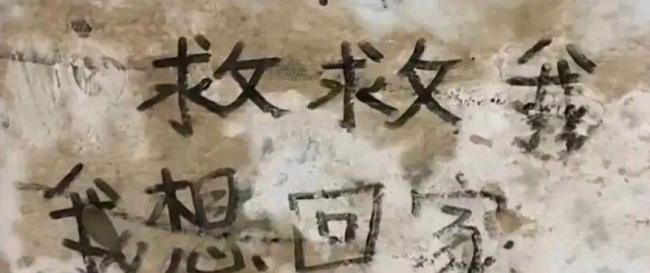 救救我
我想回家